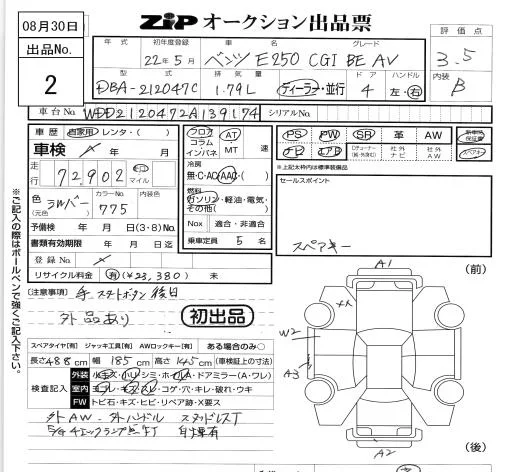 08月30日
ZIP オークション出品票
出品No.
2
評価点
3.5
内装
B
年式 初年度登録 車名 グレード
22年5月 ベンツ E250 CGI BE AV
型式 排気量 ドア ハンドル
DBA-212047C 1.79L ディーラー・並行 4 左・右
車台No. WDD2120472A139174 シリアルNo.
車歴 自家用 レンタ・( )
車検 年 月
走行 72,902 km マイル
色(元色) シルバー カラーNo. 775 内装色
予備検 年 月 日(3・8)No.
書類有効期限 年 月 日迄
登録No.
リサイクル料金 有(¥23,380) 未
フロア コラム インパネ AT MT 速
冷房
無・C・AC・AAC・( )
燃料
ガソリン・軽油・電気・その他( )
Nox 適合・非適合
乗車定員 5 名
PS PW SR 革 AW 新車時保証書
ナビ エアB 社外ナビ 社外AW スペアキー
※上記太枠内は標準装備品
セールスポイント
スペアキー
(注意事項) スタートボタン後日
外品あり
初出品
スペアタイヤ[有] ジャッキ工具[有] AWロックキー[有] ある場合のみ○
長さ488cm 幅185cm 高さ145cm (車検証上の寸法)
検査記入
外装 小キズ・ハリ・シミ・ホイルA・ドアミラー(A・ワレ)
室内 ヨゴレ・キズ・スレ・コゲ・穴・キレ・破れ・ウキ
FW トビ石・キズ・ヒビ・リペア跡・X要ス
外AW 外ハンドル スタッドレスT
A1
(前)
XX
W2
A3
A2
(後)
※ご記入の際はボールペンで強くご記入下さい。